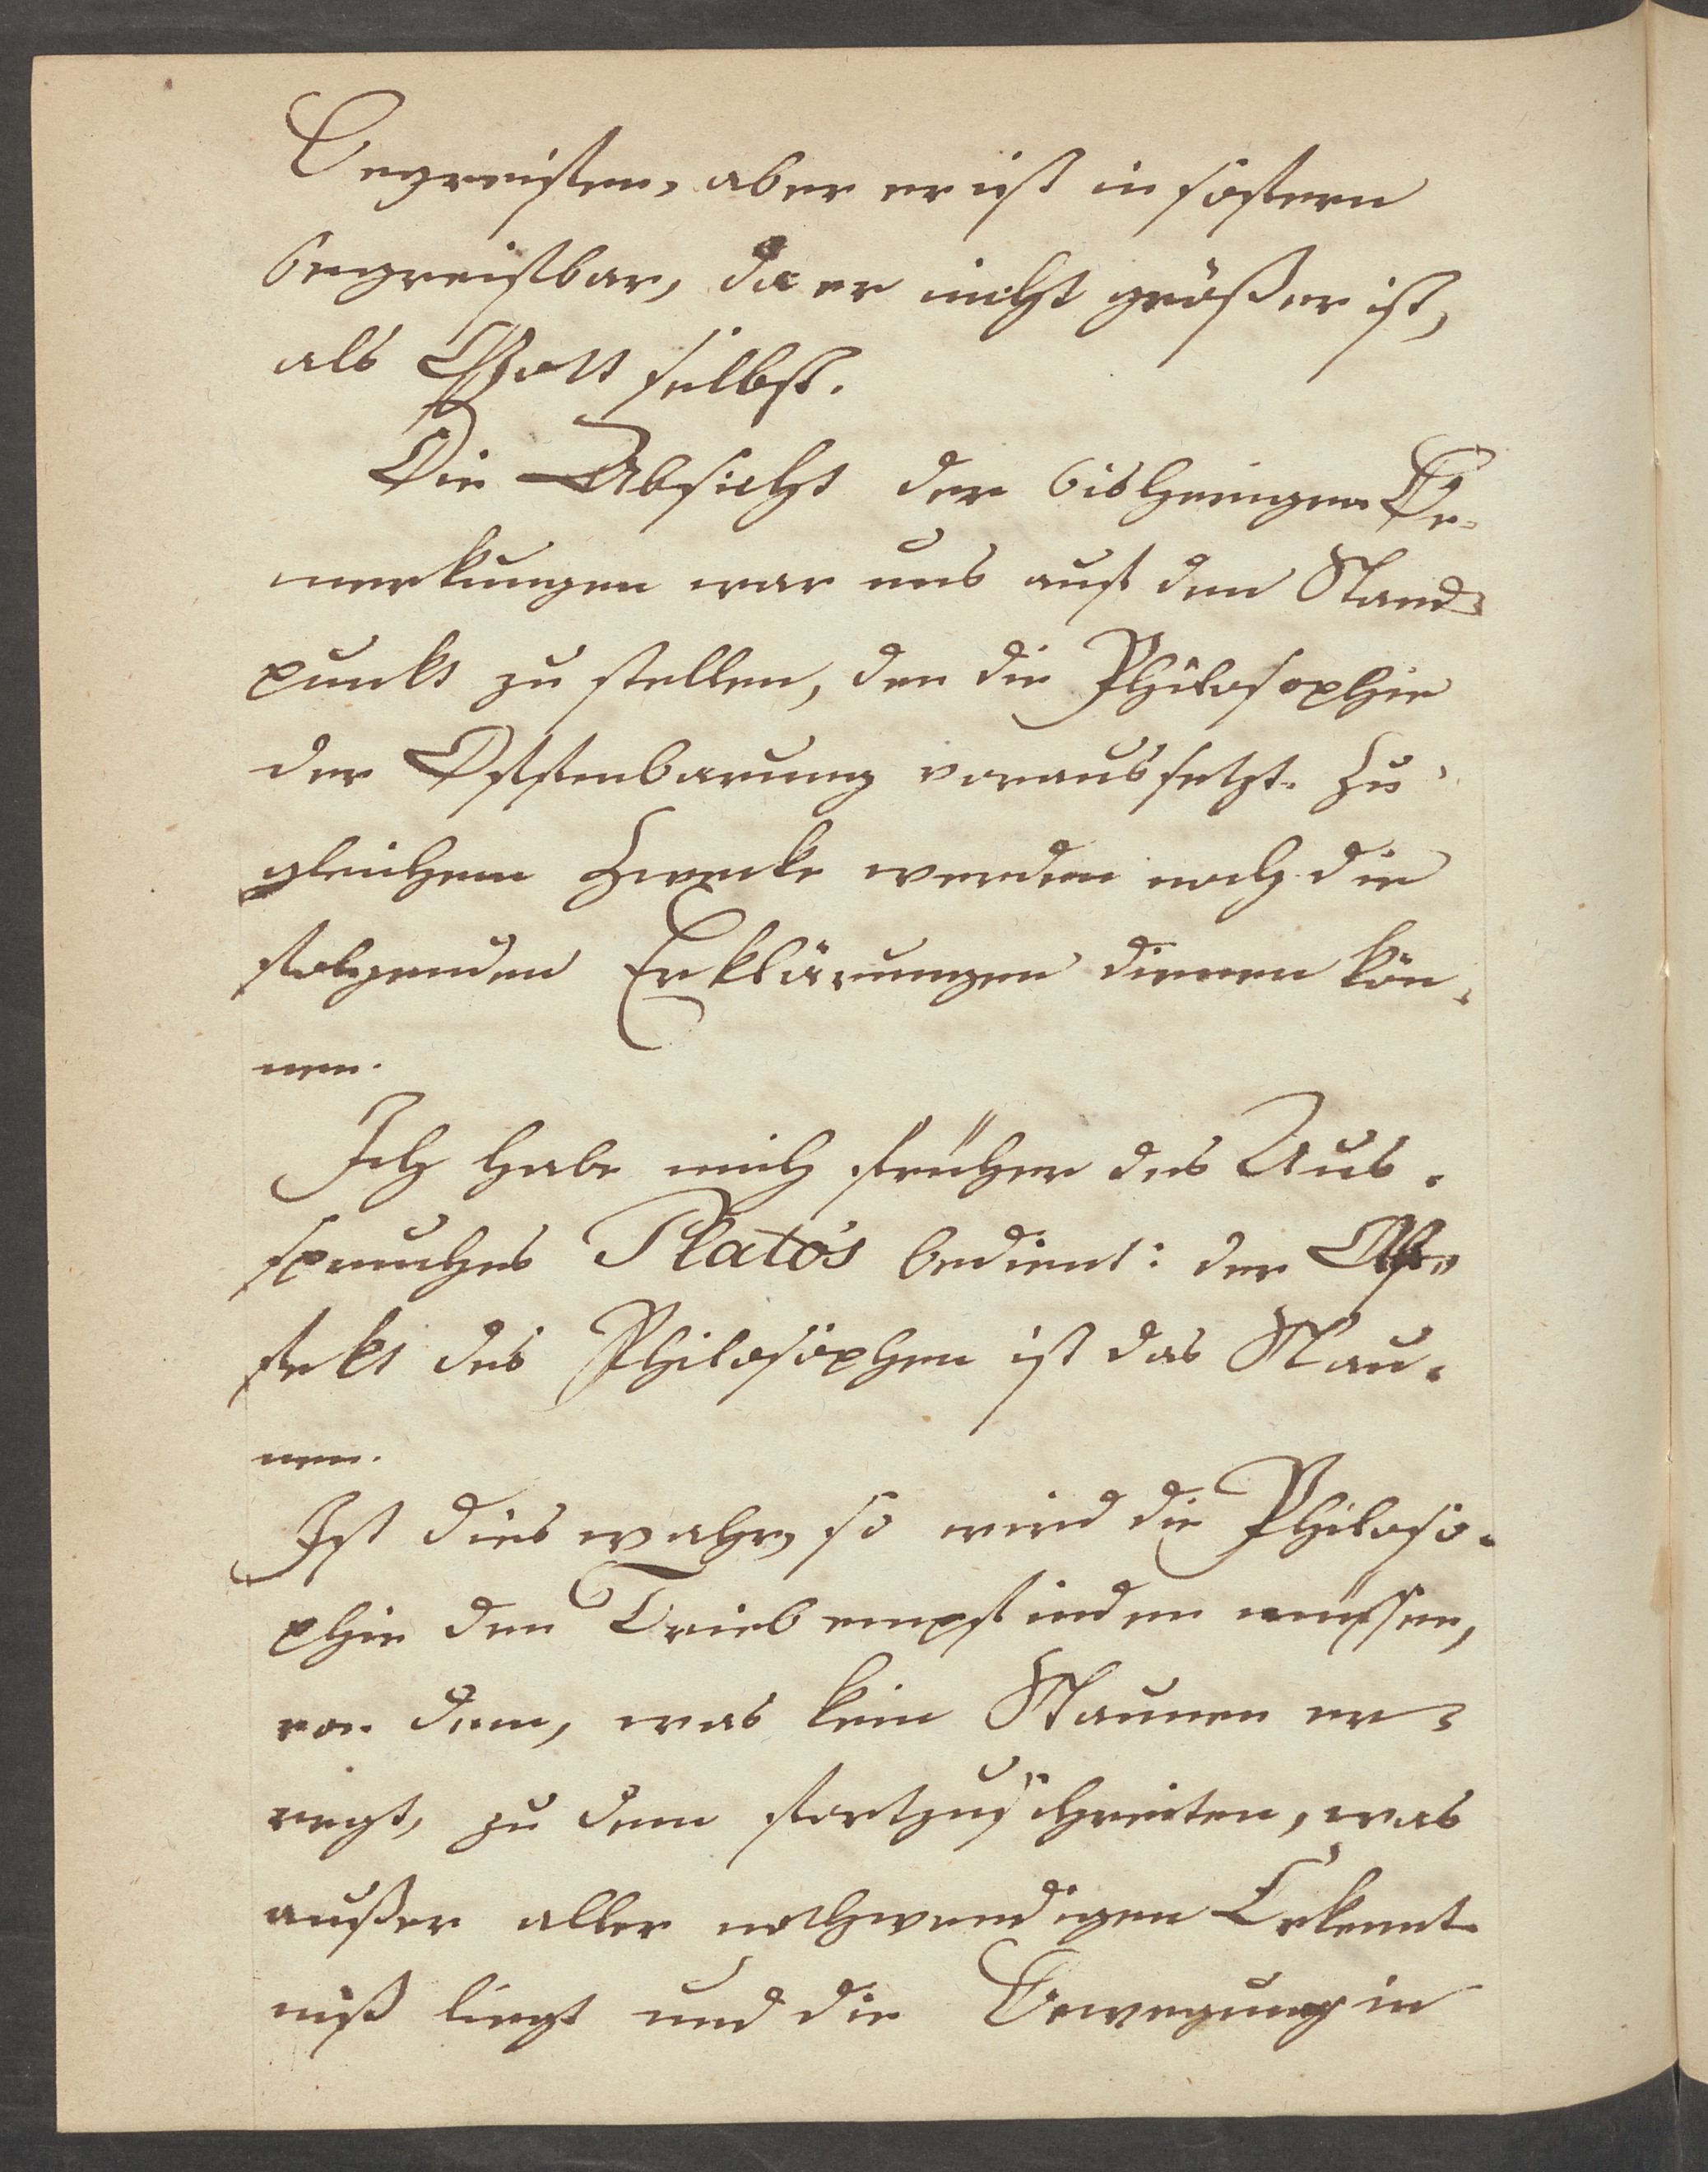 Begreifen, aber er ist in sofern
begreifbar, da er nicht größer ist,
als Gott selbst.
Die Absicht der bisherigen Be-
merkungen war uns auf den Stand-
punkt zu stellen, den die Philosophie
der Offenbarung voraussetzt. Zu
gleichem Zwecke werden noch die
folgenden Erklärungen dienen kön-
nen.
Ich habe mich früher des Aus-
spruches Plato's bedient: der Af-
fekt des Philosophen ist das Stau-
nen.
Ist dies wahr, so wird die Philoso-
phie den Trieb empfinden müssen,
von dem, was kein Staunen er-
regt, zu dem fortzuschreiten, was
außer aller nothwendigen Erkennt-
niß liegt und die Bewegung in